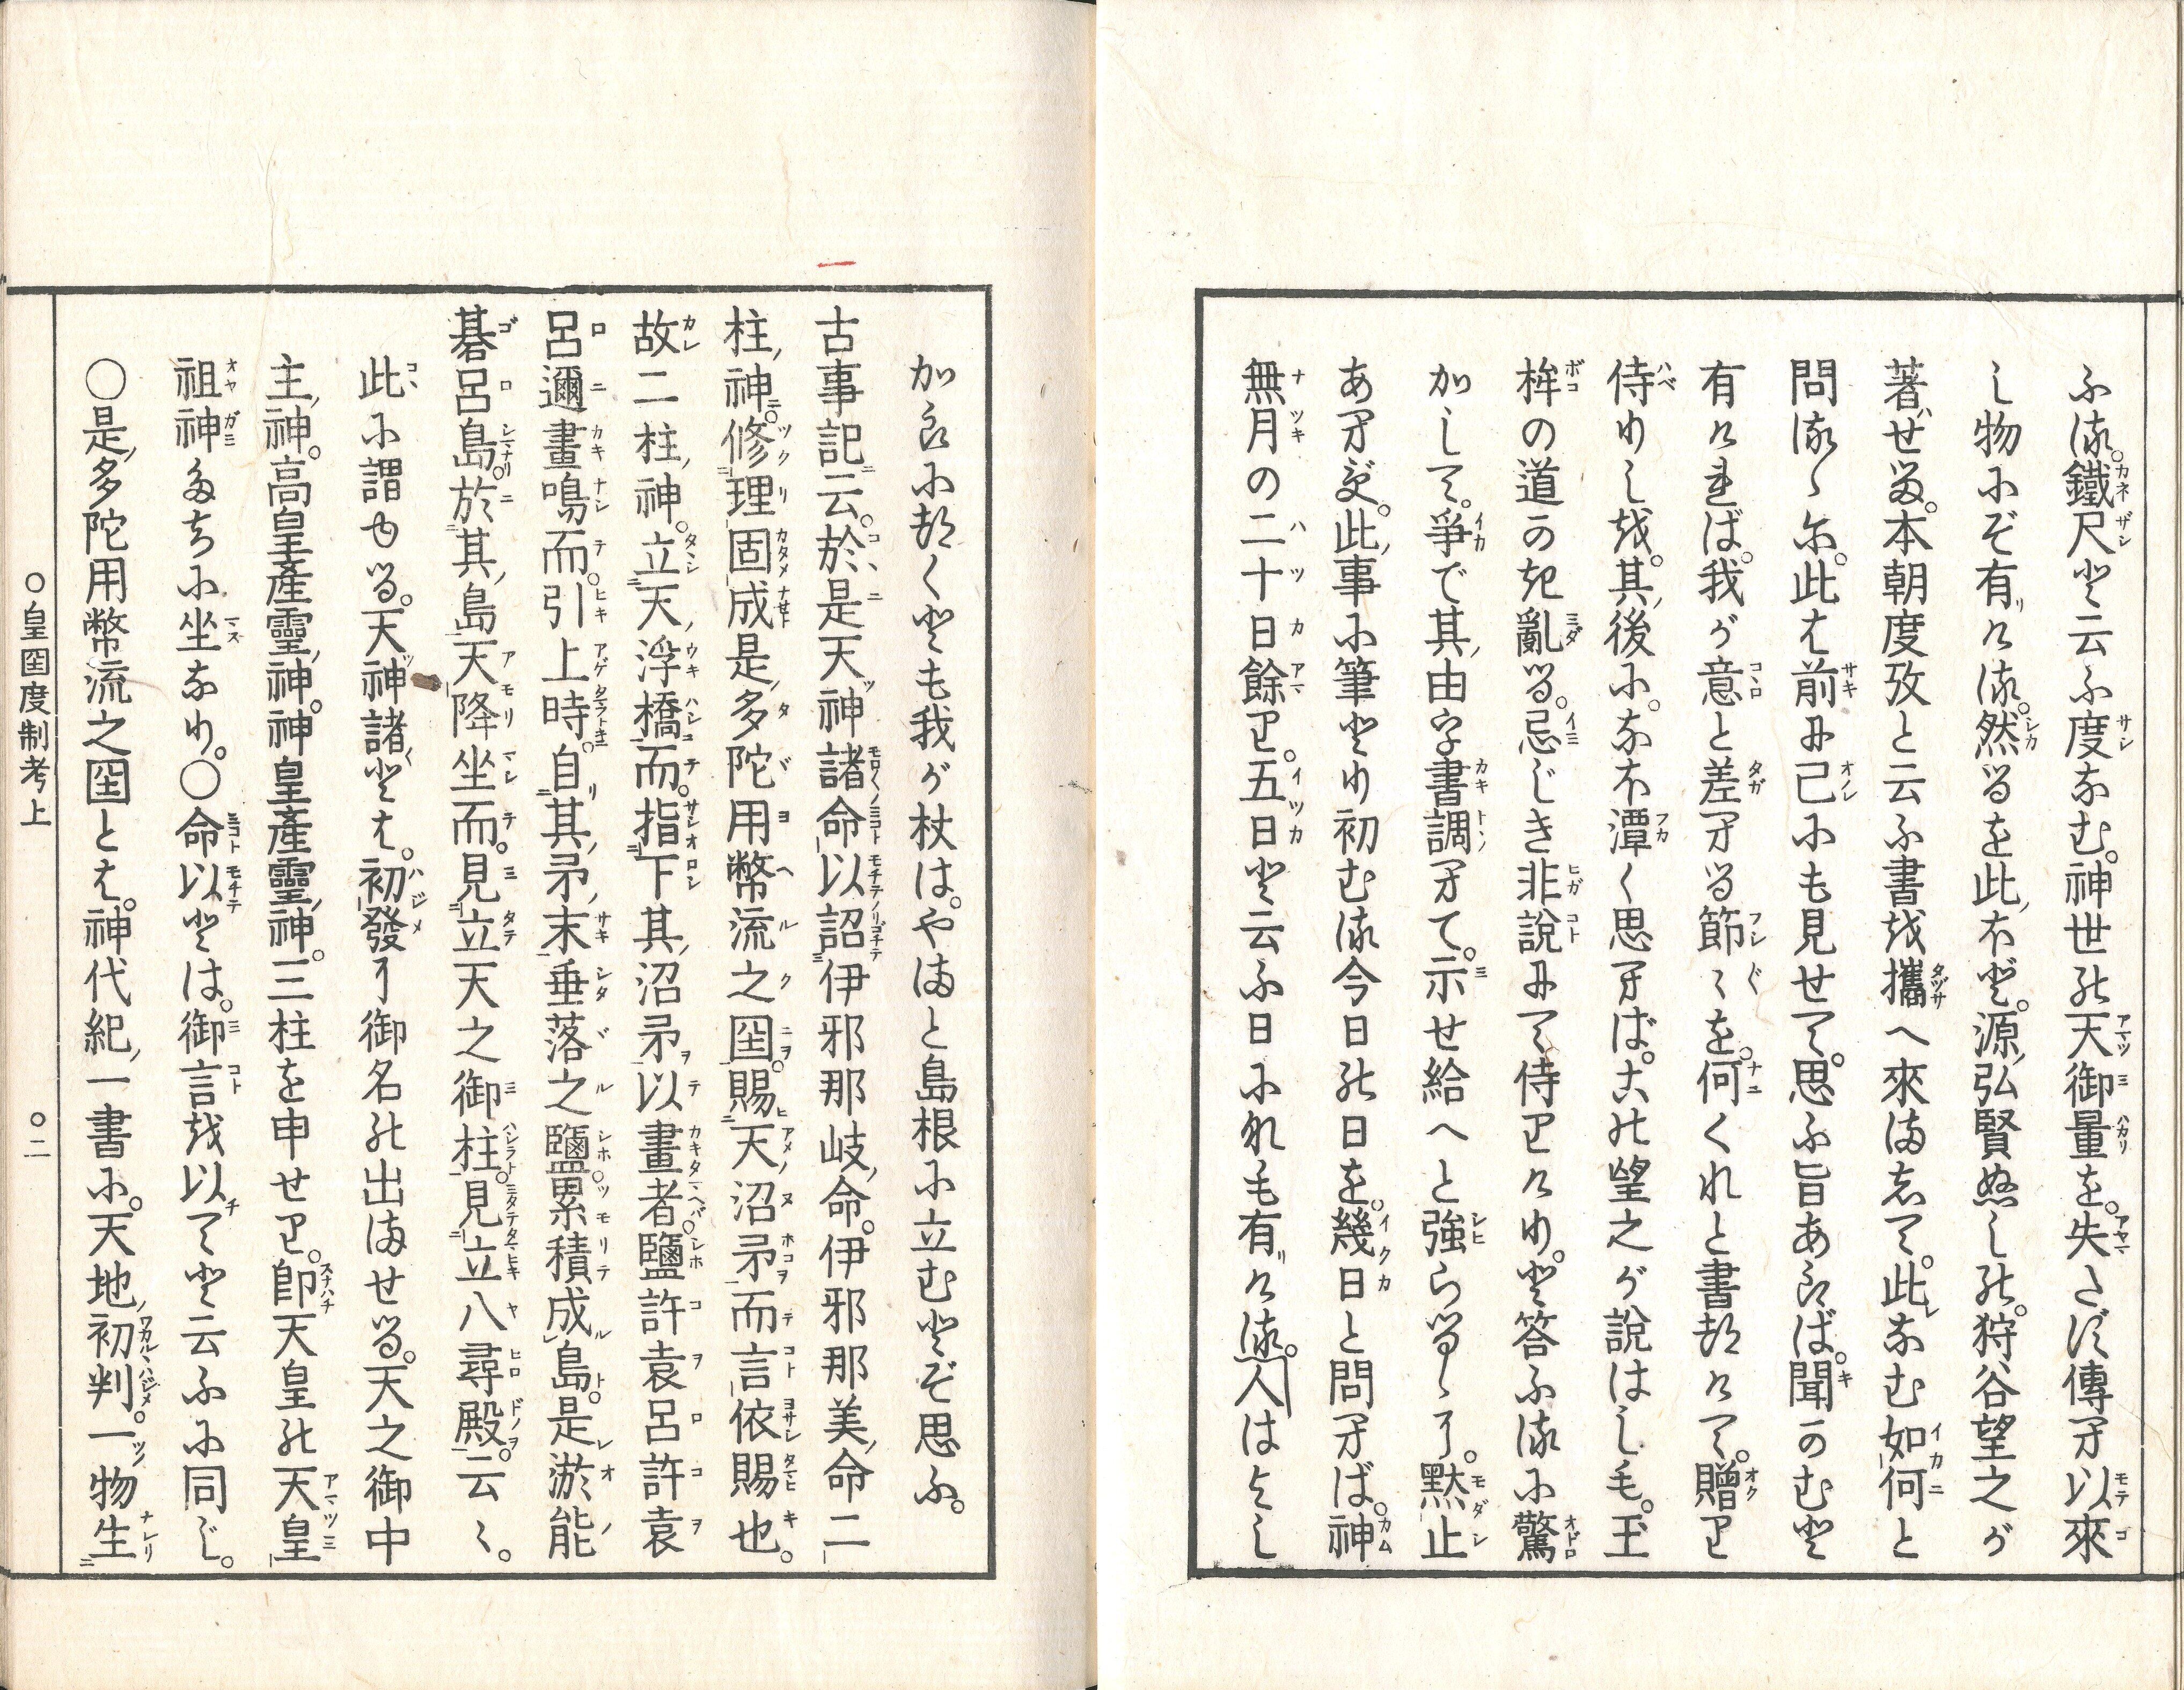 ふる。鐵尺と云ふ度なむ。神世の天御量を。失たず傳へ以來
し物にぞ有ける。然るを此ほど。源弘賢ぬしの。狩谷望之が
著せる。本朝度攷と云ふ書を攜へ來まして。此なむ如何と
問るゝに。此は前に己にも見せて。思ふ旨あらば。聞かむと
有ければ。我が意と差へる節〻を。何くれと書つけて。贈り
侍りしを。其後に。なほ潭く思へば。この望之が說はしも。玉
桙の道かき亂る。忌じき非說にて侍りけり。と答ふるに驚
かして。爭で其由を書調へて。示せ給へと強らるゝに。默止
あへず。此事に筆とり初むる今日の日を。幾日と問へば。神
無月の二十日餘り。五日と云ふ日になも有ける。人はよし
からにつくとも我が杖は。やまと島根に立むとぞ思ふ。
古事記云。於是天神諸命以詔伊邪那岐命。伊邪那美命二
柱神。修理固成是多陀用幣流之国。賜天沼矛而言依賜也。
故二柱神。立天浮橋而。指下其沼矛以畫者。鹽許袁呂許袁
呂邇畫鳴而。引上時。自其矛末垂落之鹽。累積成島。是淤能
碁呂島。於其島天降坐而。見立天之御柱。見立八尋殿。云〻。
此に謂ゆる。天神諸とは。初發に御名の出ませる。天之御中
主神。高皇產靈神。神皇產靈神。三柱を申せり。卽天皇の天皇
祖神たちに坐なり。○命以とは。御言を以てと云ふに同じ。
○是多陀用幣流之国とは。神代紀一書に。天地初判。一物生
○皇国度制考上　○二